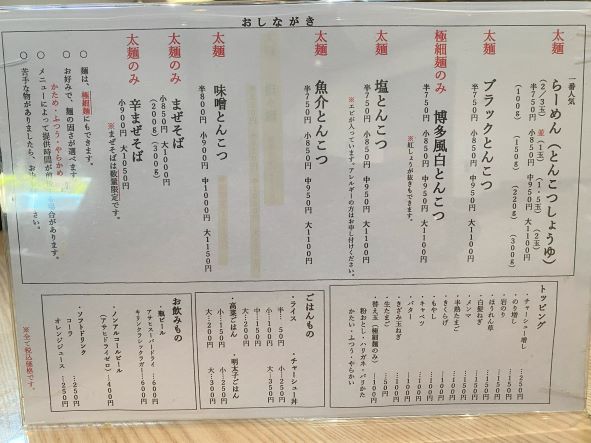 おしながき
太麺
一番人気
らーめん（とんこつしょうゆ）
（2／3玉） 並（1玉） （1・5玉） （2玉）
半750円 小850円 中950円 大1100円
（100g） （150g） （220g） （300g）
太麺
ブラックとんこつ
半750円 小850円 中950円 大1100円
極細麺のみ
博多風白とんこつ
半750円 小850円 中950円 大1100円
※紅しょうが抜きもできます。
太麺
塩とんこつ
半750円 小850円 中950円 大1100円
※エビが入っています。アレルギーの方はお申し付けください。
太麺
魚介とんこつ
半750円 小850円 中950円 大1100円
太麺
味噌とんこつ
半800円 小900円 中1000円 大1150円
太麺のみ
まぜそば
小850円 大1000円
（200g） （300g）
太麺のみ
辛まぜそば
小900円 大1050円
※まぜそばは数量限定です。
○ 麺は、極細麺にもできます。
○ お好みで、麺の固さが選べます。
かため・ふつう・やらかめ
○ メニューによって提供時間が
場合があります。
○ 苦手な物がありましたら、お
さい。
トッピング
・チャーシュー増し …250円
・のり増し …150円
・岩のり …150円
・ほうれん草 …150円
・白髪ねぎ …150円
・メンマ …150円
・半熟たまご …150円
・きくらげ …100円
・もやし …100円
・キャベツ …100円
・バター …100円
・きざみ玉ねぎ …100円
・生たまご …50円
・替え玉（極細麺のみ） …100円
粉おとし・ハリガネ・バリかた
かたい・ふつう・やらかい
ごはんもの
・ライス
半… 50円
小…100円
中…150円
大…200円
・チャーシュー丼
小…250円
大…350円
・高菜ごはん
小…150円
大…200円
・明太子ごはん
小…250円
大…300円
お飲みもの
・瓶ビール
アサヒスーパードライ …600円
キリンクラシックラガー …600円
・ノンアルコールビール
（アサヒドライゼロ） …400円
・ソフトドリンク
コーラ …250円
オレンジジュース …250円
※全て税込価格です。